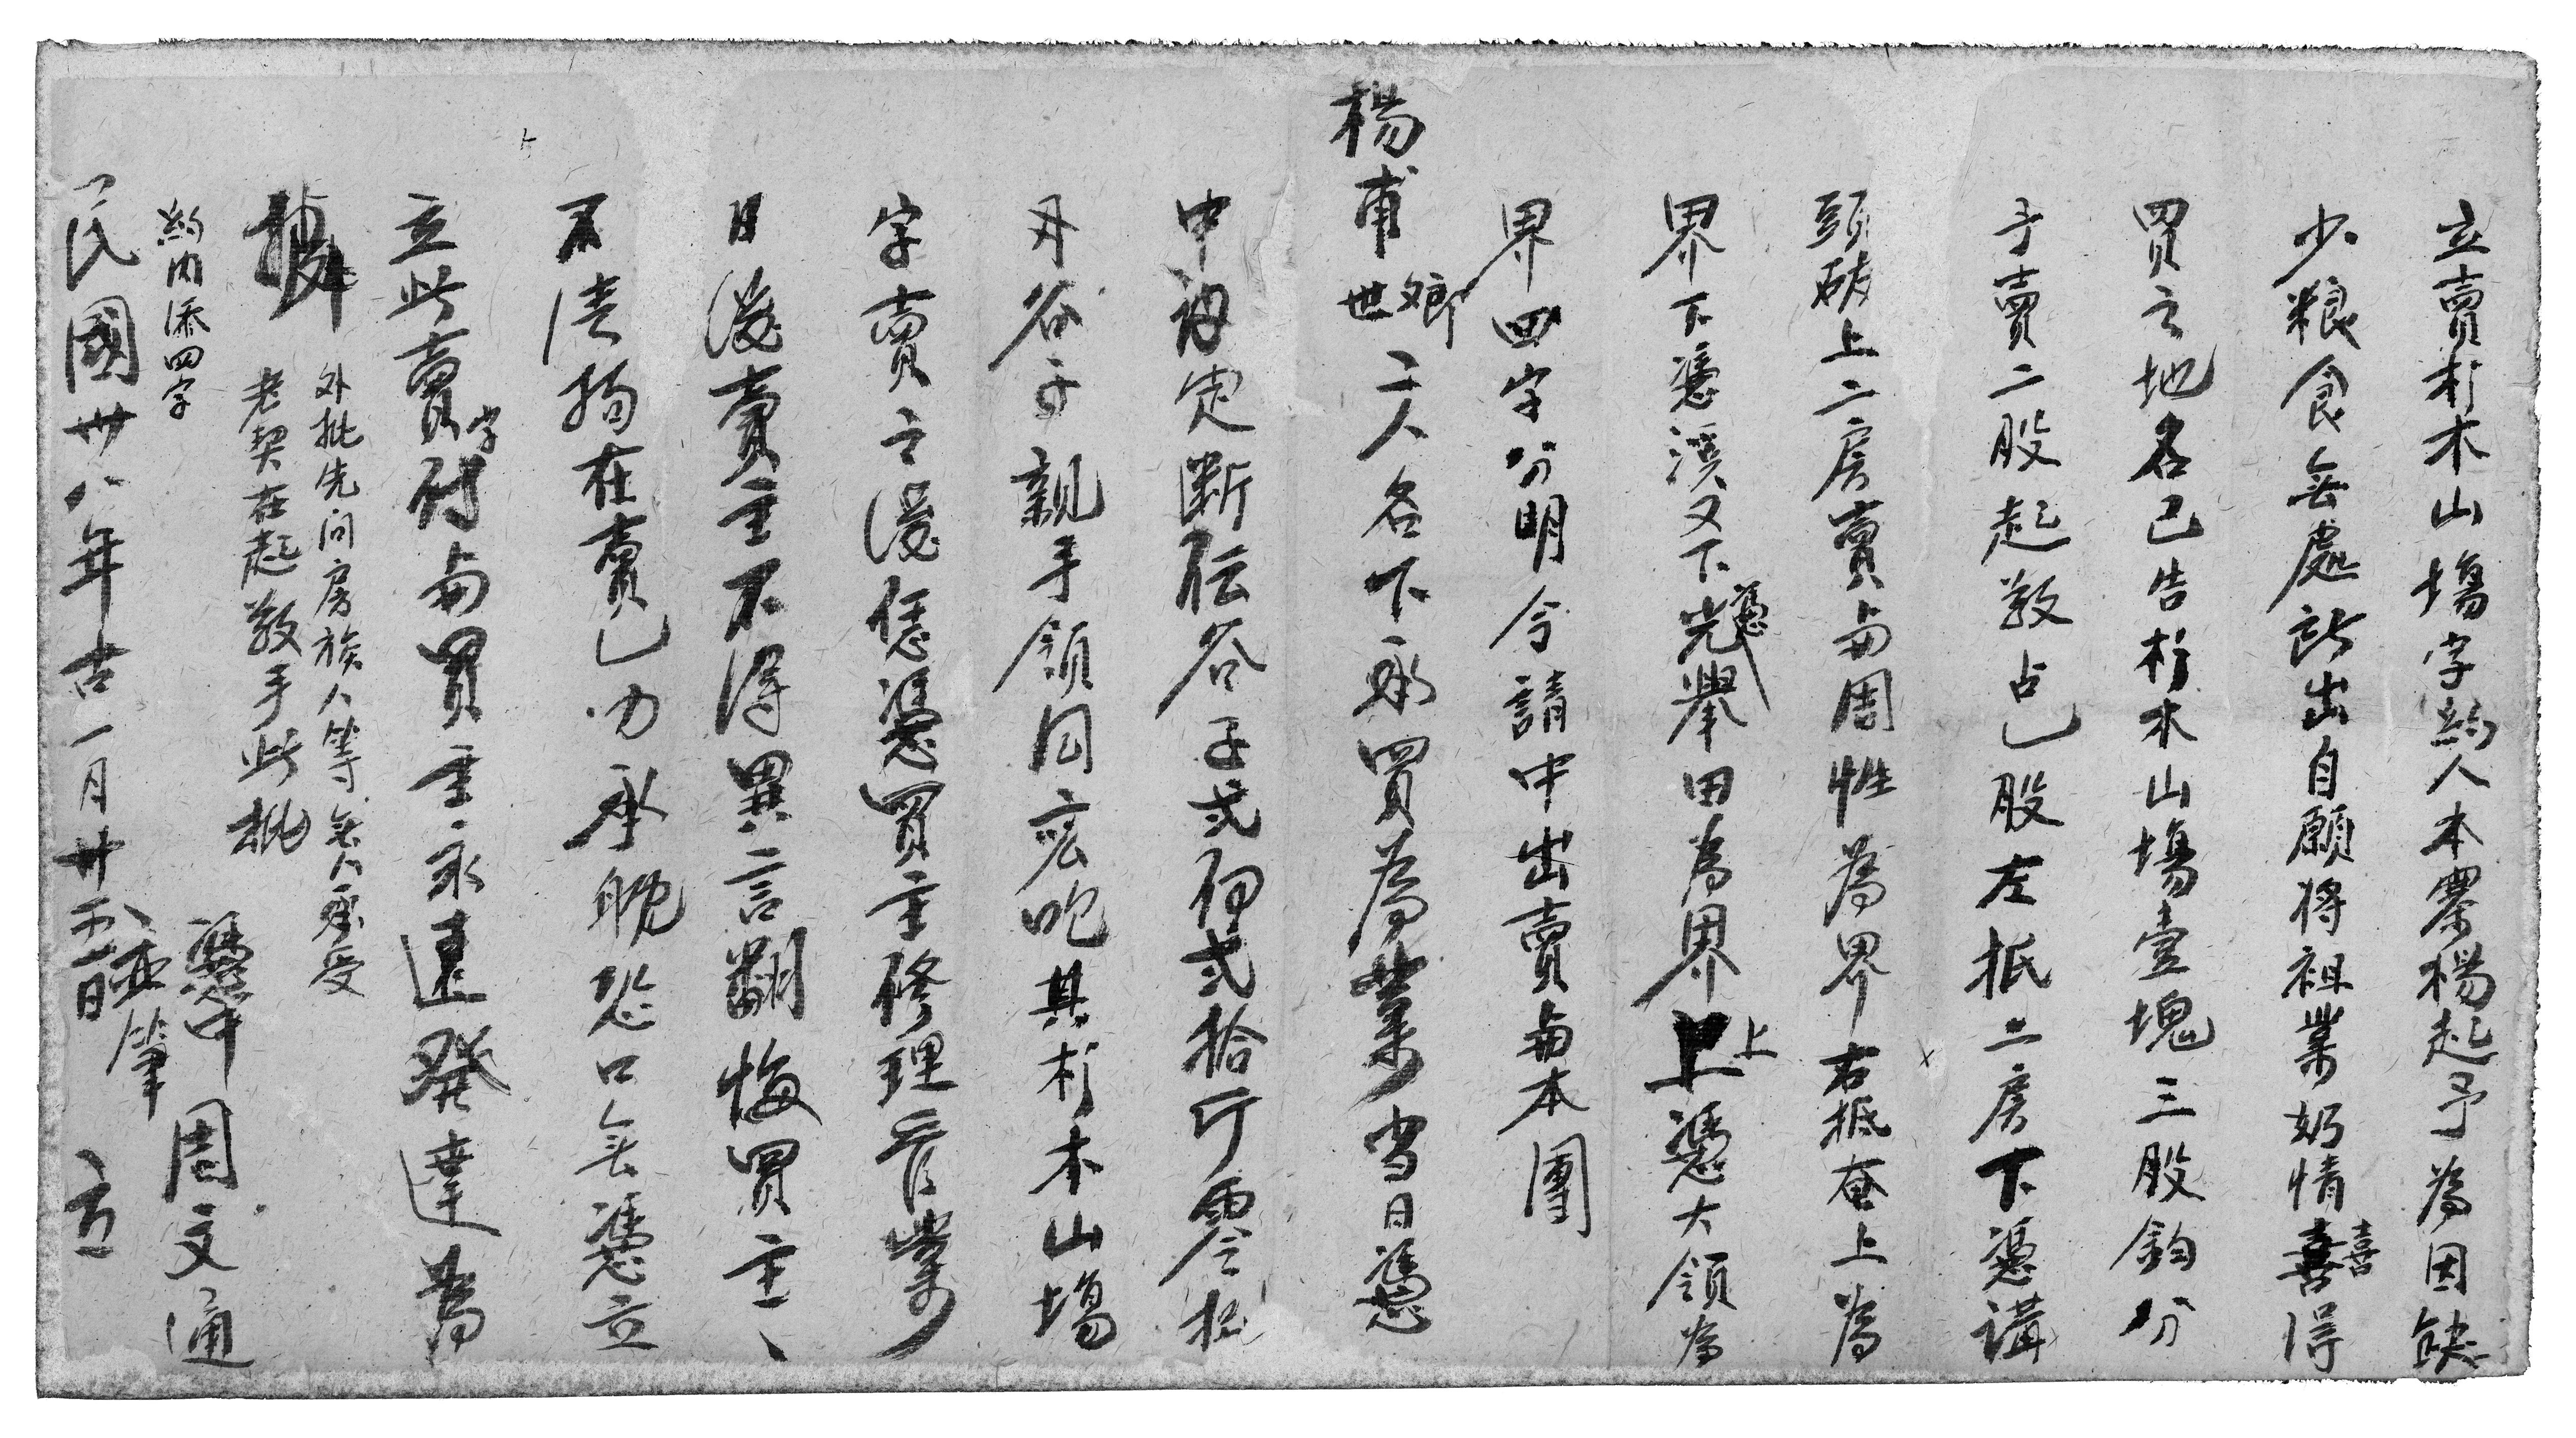 立賣杉木山塲字約人本寨楊起予為因缺
少粮食無處所出自願将祖業奶情喜喜得
買之地名己告杉木山塲壹塊三股鈞分
予賣二股起敎占乚股左抵二房下憑溝
頭破上二房賣与周性為界右抵奄上為
界下憑溪又下憑光舉田為界上上憑大領為
界四字分明今請中出賣与本團
楊甫世卿二人名下承買為業当日憑
中初定断伝谷子弍伯弍拾斤零
丹谷子親手領囘应吃其杉木山塲
字賣之後恁憑買主修理管業
日後賣主不得異言翻悔買主丶
不清拘在賣乚力承躭恐口無憑立
立此賣字付与買主永遠發達為
據
外批先问房族人等無人承受
老契在起敎手此批
約内添四字
憑中 周文通
亚筆
民國卅八年古一月廿五日 立